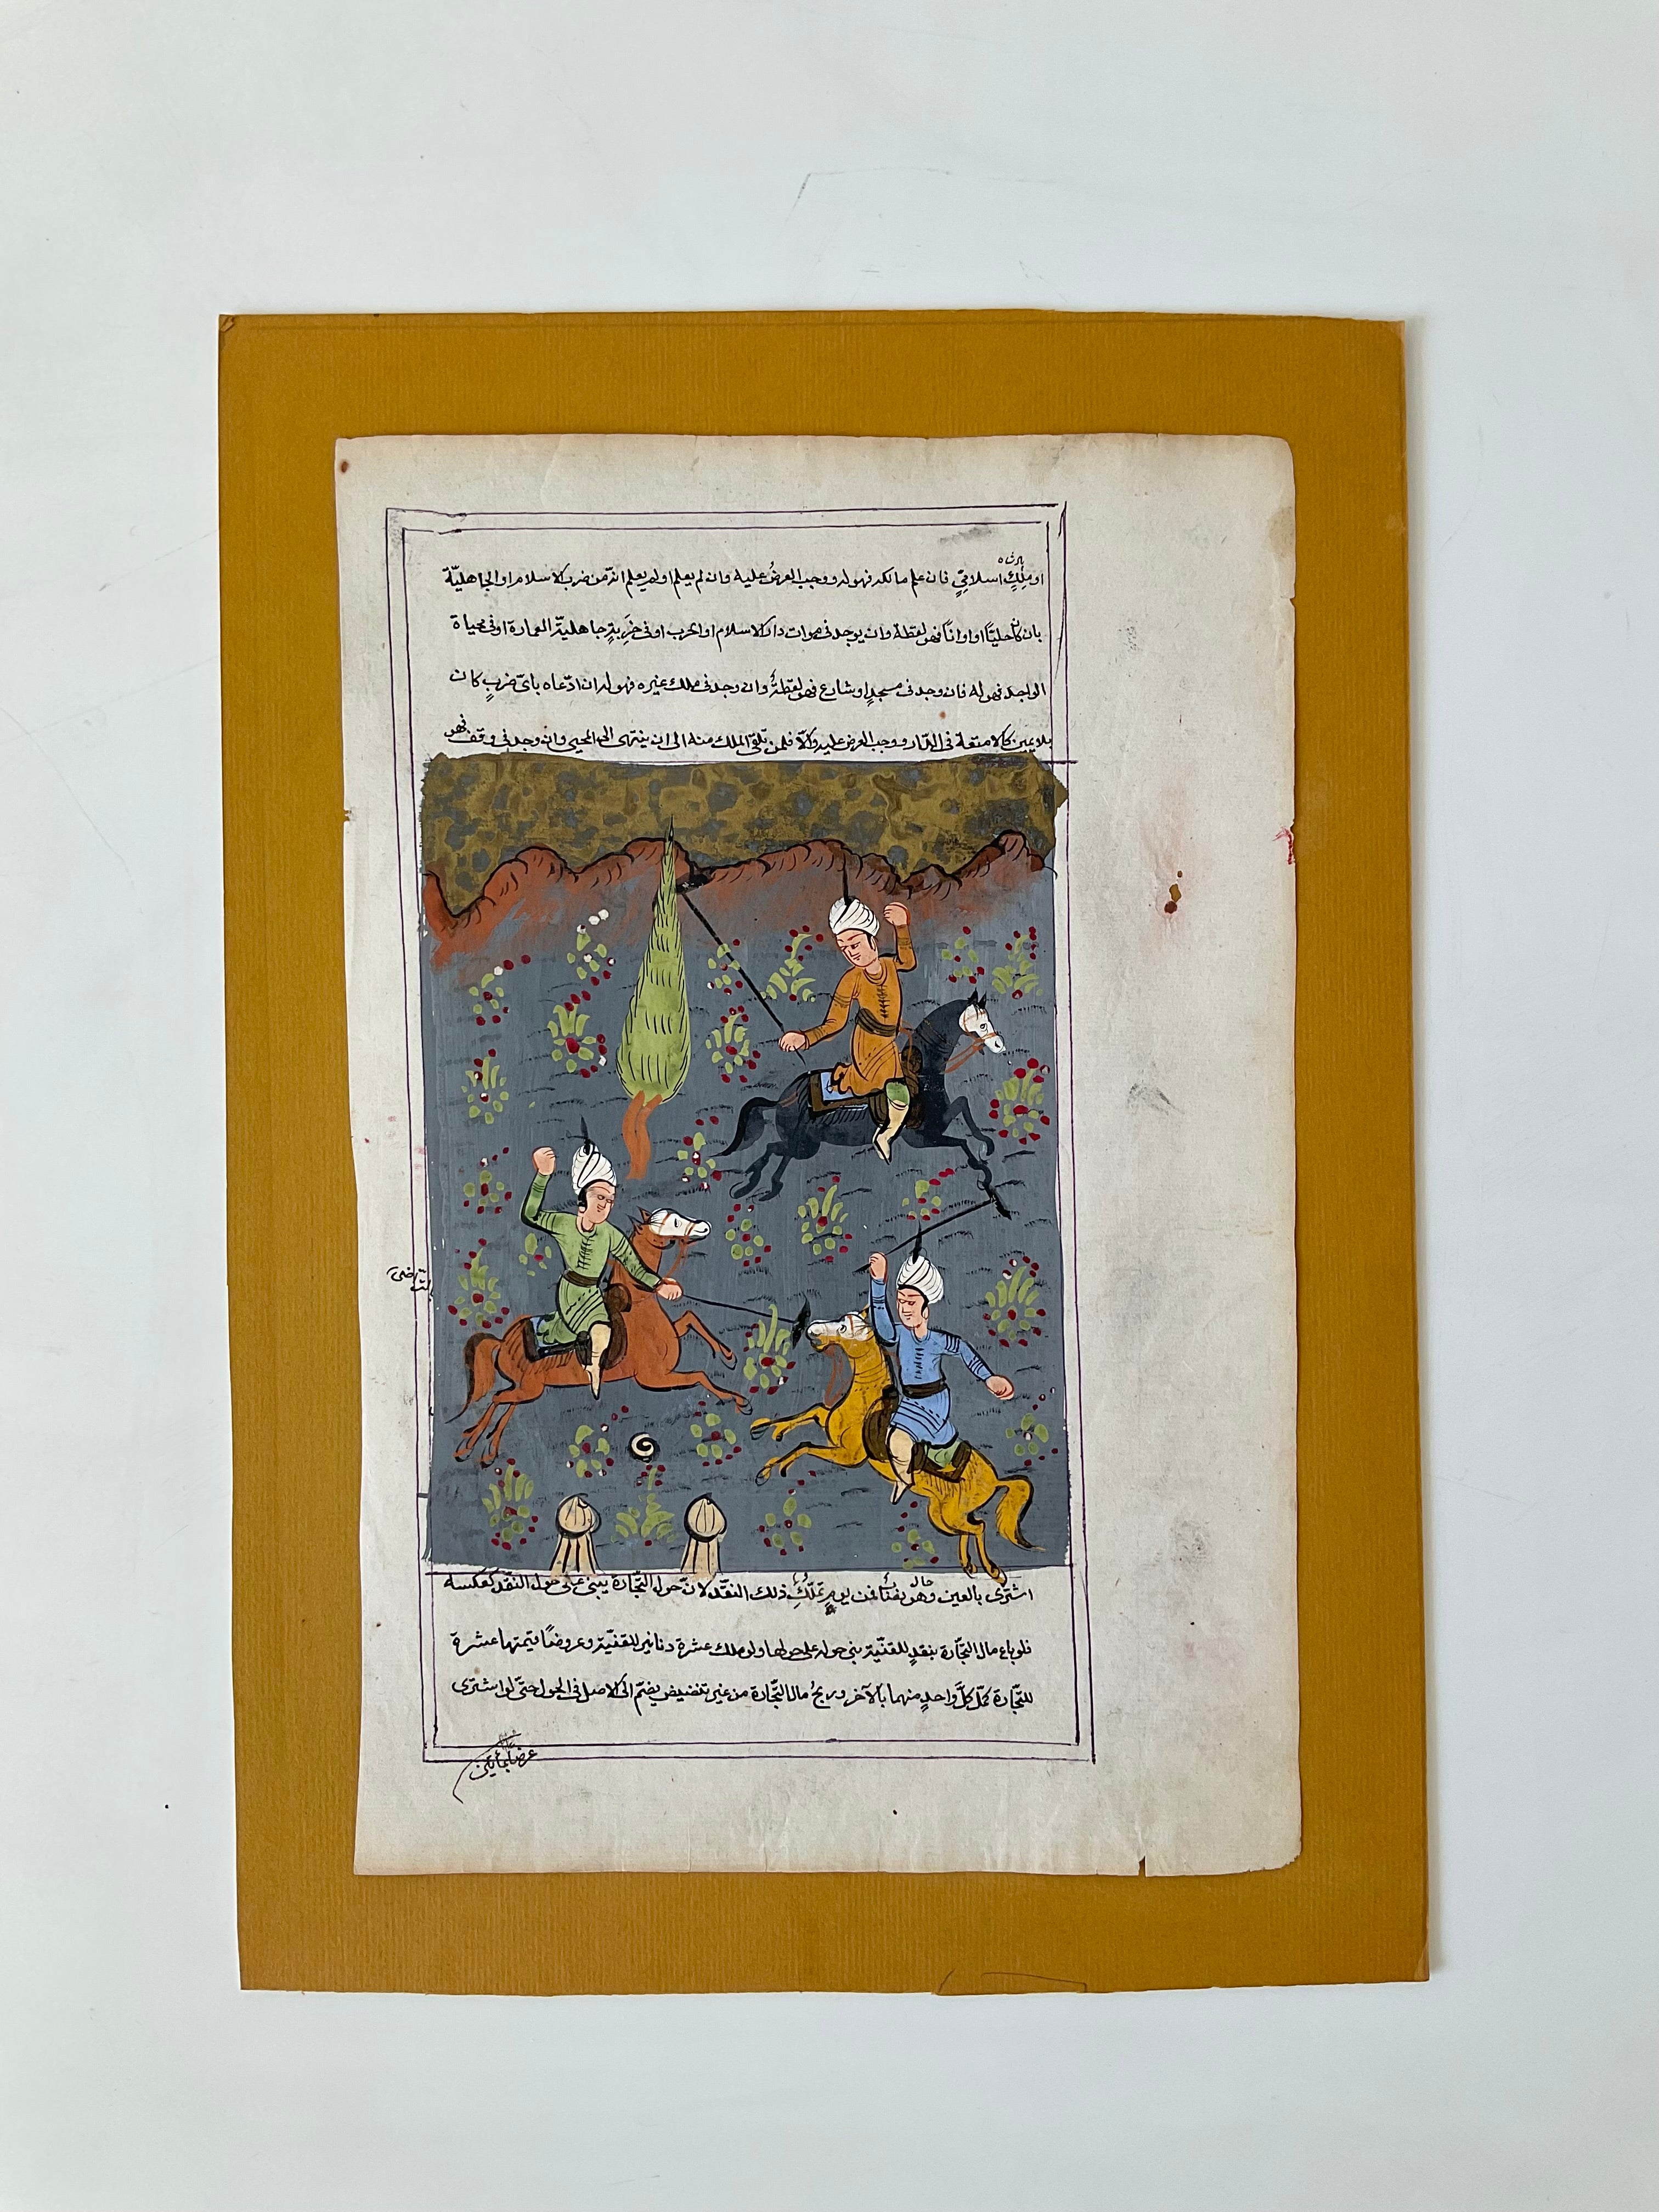 او ملكٍ اسلاميٍّ فان علم مالكه فهو له ووجب العرضُ عليه وان لم يعلم اولم يعلم انّه من ضرب الاسلام او الجاهليّة
بان كان حليّاً او اوانًا فهو لقطة وان يوجد فى موات دار الاسلام او الحرب او فى خَرِبةٍ جاهليّة العمارة او فى محياة
الواجد فهو له فان وجد فى مسجدٍ او شارع فهو لقطةٌ وان وجد فى ملك غيره فهو له ان ادّعاه باىّ ضربٍ كان
بلا يمين كالامتعة فى الدّار ووجب العرض عليه والاّ فلمن تلقى الملك منه الى ان ينتهى الى المحيى وان وجد فى وقف فهو
حال
اشترى بالعين وهو نصاباً فمن يوم تملّك ذلك النقد لانّ حول التّجارة يبنى على حول النقد كعكسه
فلو باع مال التّجارة بنقدٍ للقنية بنى حوله على حولها ولو ملك عشرة دنانير للقنية وعروضاً قيمتها عشرة
للتّجارة كمّل كلّ واحدٍ منهما بالآخر وربحُ مال التّجارة من غير تنضيض يضمّ الى الاصل فى الحول حتّى لو اشترى